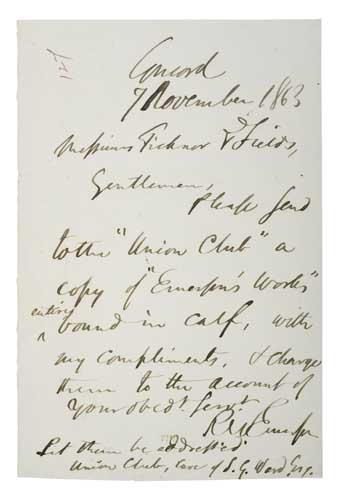 Concord
7 November 1863
Messieurs Ticknor & Fields,
Gentlemen,
Please send
to the "Union Club" a
copy of "Emerson's Works"
entire
^ bound in calf, with
my compliments, & charge
them to the account of
Your obedt. servt.
R W Emerson
Let them be addressed
Union Club, care of S. G. Ward Esq.